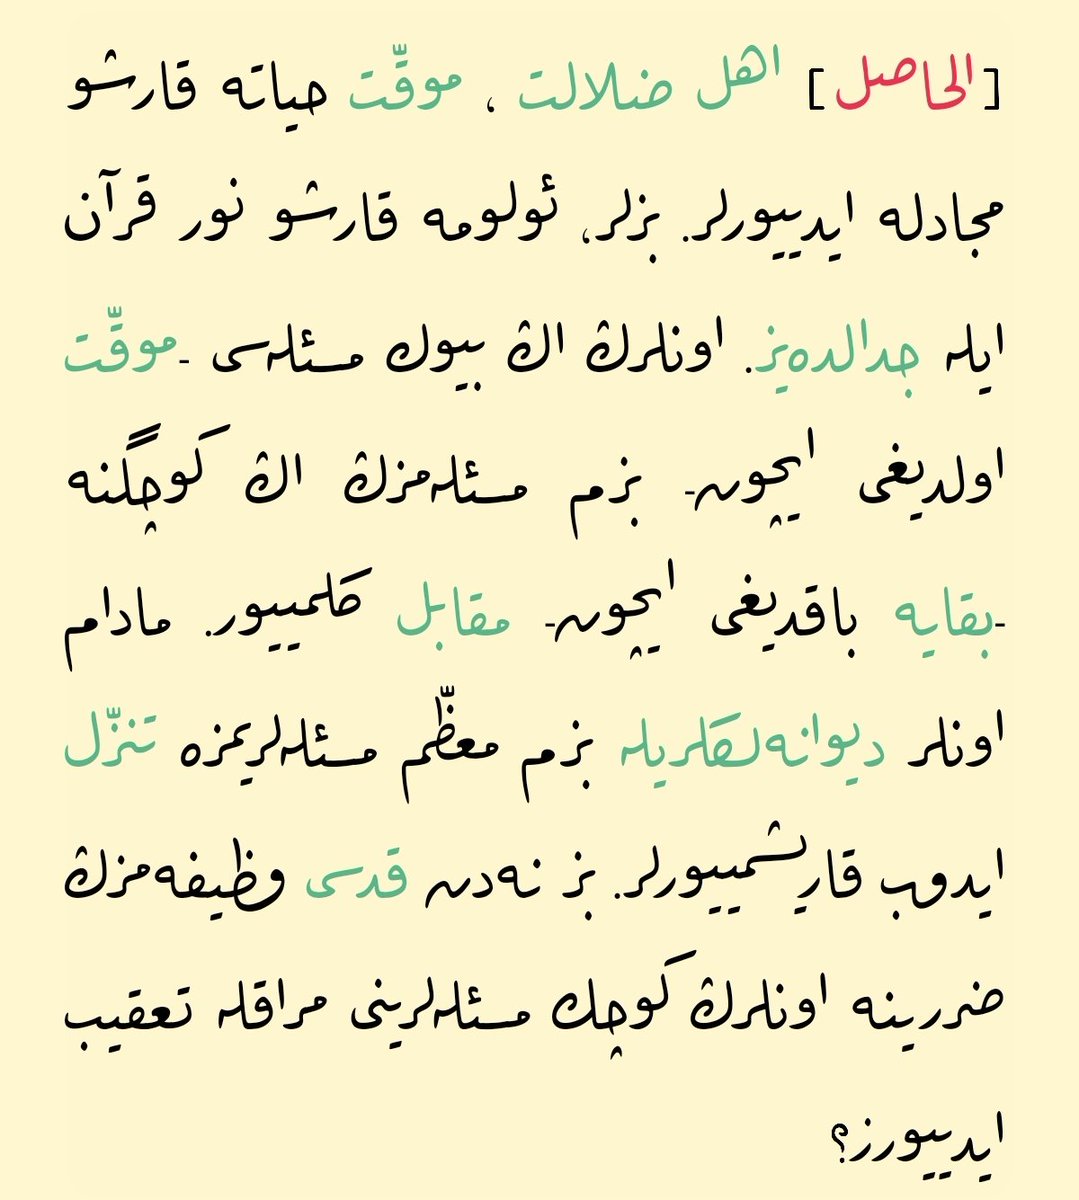 [الحاصل] اهل ضلالت ، موقّت حياته قارشو
مجادله ايدييورلر. بزلر، ئولومه قارشو نور قرآن
ايله جدالده‌يز. اونلرڭ اڭ بيوك مسئله‌سى -موقّت
اولديغى ايچون- بزم مسئله‌مزڭ اڭ كوچگنه
-بقايه باقديغى ايچون- مقابل كلمييور. مادام
اونلر ديوانه‌لكلريله بزم معظّم مسئله‌لريمزه تنزّل
ايدوب قاريشمييورلر. بز نه‌دن قدسى وظيفه‌مزڭ
ضررينه اونلرڭ كوچك مسئله‌لرينى مراقله تعقيب
ايدييورز؟